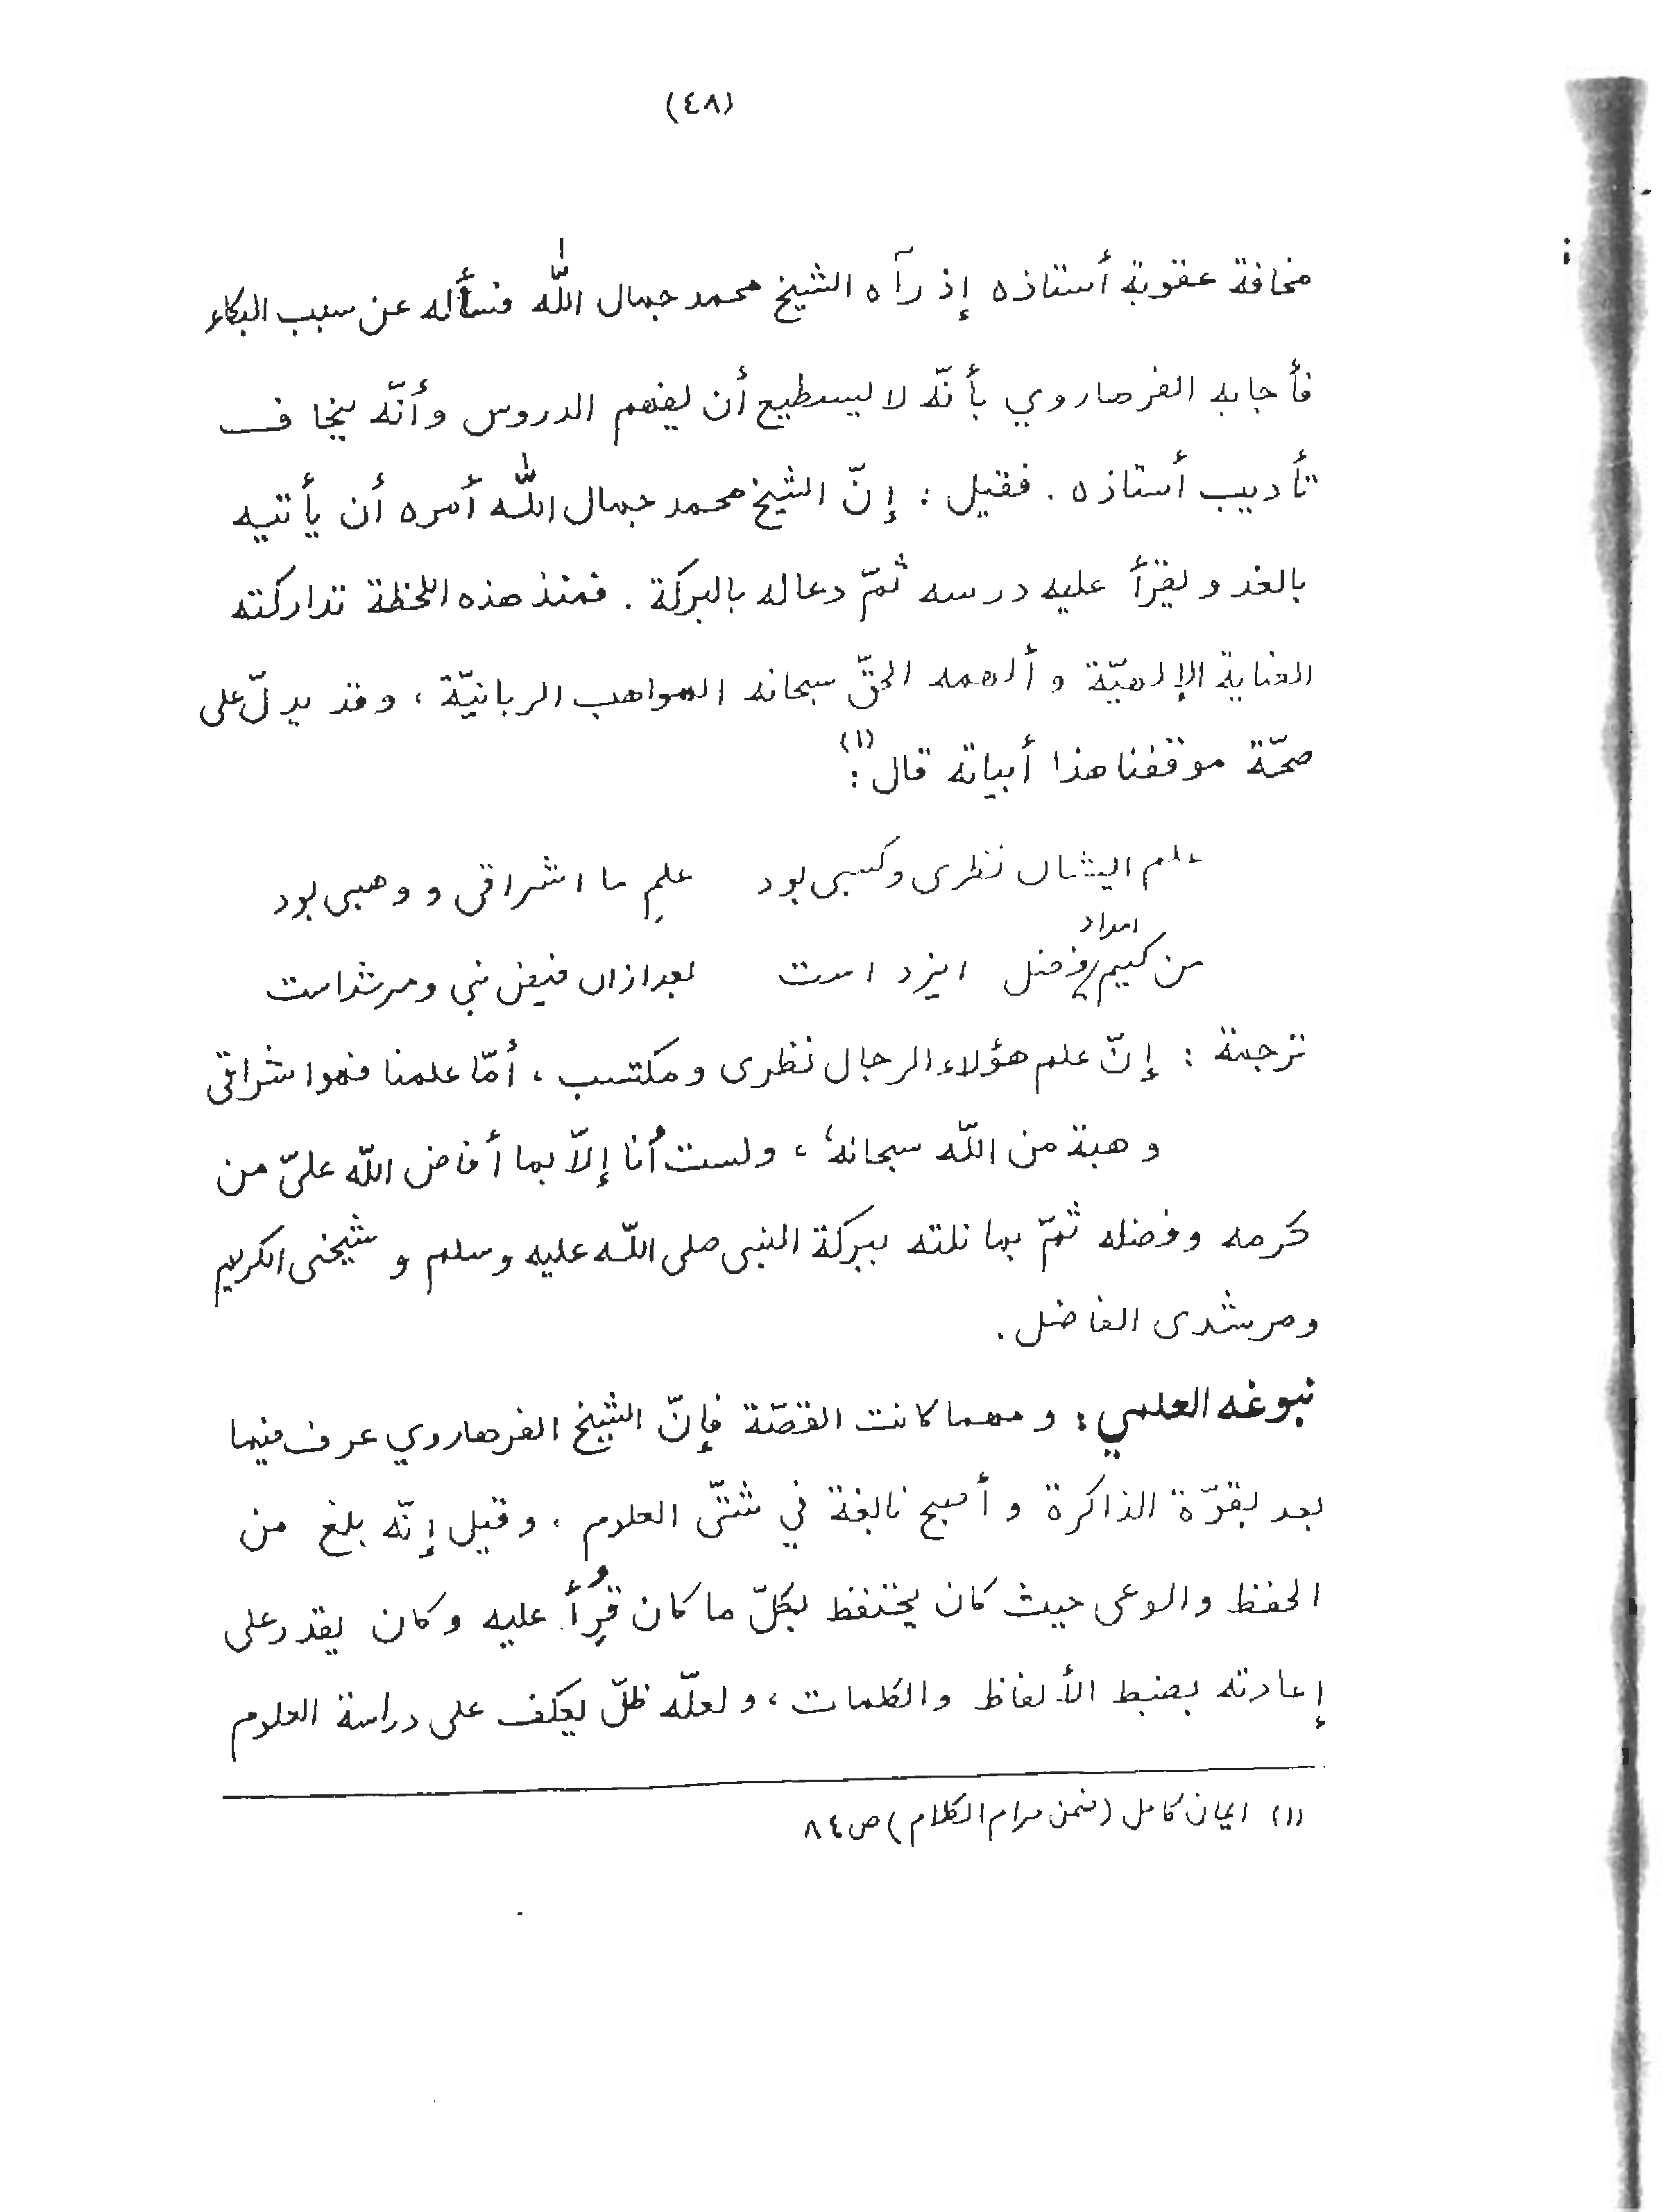 (٤٨)
مخافة عقوبة أستاذه إذ رآه الشيخ محمد جمال الله فسأله عن سبب البكاء
فأجابه الفرهاروي بأنّه لا يسطيع أن يفهم الدروس وأنّه يخاف
تأديب أستاذه . فقيل : إنّ الشيخ محمد جمال الله أمره أن يأتيه
بالغد و يقرأ عليه درسه ثمّ دعا له بالبركة . فمنذ هذه اللحظة تداركته
العناية الإلهيّة و ألهمه الحقّ سبحانه المواهب الربانيّة ، وقد يدلّ على
صحّة موقفنا هذا أبياته قال (١) :
علم ایشاں نظری و کسبی بود علمِ ما اشراقی و وهبی بود
من کیم امداد و فضل ایزد است بعد ازاں فیض نبی و مرشد است
ترجمة : إنّ علم هؤلاء الرجال نظرى ومكتسب ، أمّا علمنا فهو اشراقى
وهبة من اللّه سبحانهُ ، ولست أنا إلاّ بما أفاض اللّه علىّ من
كرمه وفضله ثمّ بما نلته ببركة النبى صلى اللّه عليه وسلم و شيخى الكريم
ومرشدى الفاضل .
نبوغه العلمي : و مهما كانت القصّة فإنّ الشيخ الفرهاروي عرف فيما
بعد بقوّة الذاكرة و أصبح نابغة في شتّى العلوم ، وقيل إنّه بلغ من
الحفظ والوعى حيث كان يحتفظ بكلّ ما كان قُرِأ عليه وكان يقدر على
إعادته بضبط الألفاظ والكلمات ، ولعلّه ظلّ يعكف على دراسة العلوم
(١) ايمان كامل (ضمن مرام الكلام) ص ٨٤